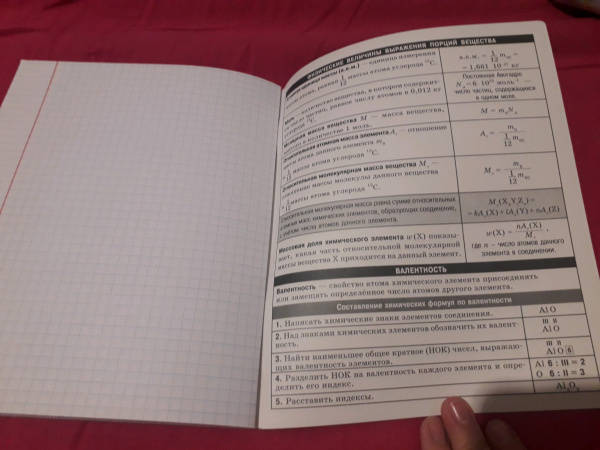 ФИЗИЧЕСКИЕ ВЕЛИЧИНЫ ВЫРАЖЕНИЯ ПОРЦИЙ ВЕЩЕСТВА
массы (а.е.м.) — единица измерения
массы атома, равная 1/12 массы атома углерода ¹²C.
а.е.м. = 1/12 m =
= 1,661 · 10
Моль — количество вещества, в котором содержит-
частиц, равное числу атомов в 0,012 кг
углерода ¹²C.
Постоянная Авогадро
N = 6 · 10 моль⁻¹ —
число частиц, содержащихся
в одном моле.
Молярная масса вещества M — масса вещества,
взятого в количестве 1 моль.
M = m N
Относительная атомная масса элемента A — отношение
массы атома данного элемента m
к 1/12 массы атома углерода ¹²C.
A = m / 1/12 m
Относительная молекулярная масса вещества M —
отношение массы молекулы данного вещества
к 1/12 массы атома углерода ¹²C.
M = m / 1/12 m
Относительная молекулярная масса равна сумме относительных
атомных масс химических элементов, образующих соединение,
с учётом числа атомов данного элемента.
M (X Y Z ) =
= kA (X) + lA (Y) + nA (Z)
Массовая доля химического элемента w(X) показы-
вает, какая часть относительной молекулярной
массы вещества X приходится на данный элемент.
w(X) = nA (X) / M ,
где n – число атомов данного
элемента в соединении.
ВАЛЕНТНОСТЬ
Валентность — свойство атома химического элемента присоединять
или замещать определённое число атомов другого элемента.
Составление химических формул по валентности
1. Написать химические знаки элементов соединения.
Al O
2. Над знаками химических элементов обозначить их валент-
ность.
III II
Al O
3. Найти наименьшее общее кратное (НОК) чисел, выражаю-
щих валентность элементов.
III II
Al O 6
4. Разделить НОК на валентность каждого элемента и опре-
делить его индекс.
Al 6 : III = 2
O 6 : II = 3
5. Расставить индексы.
Al₂O₃